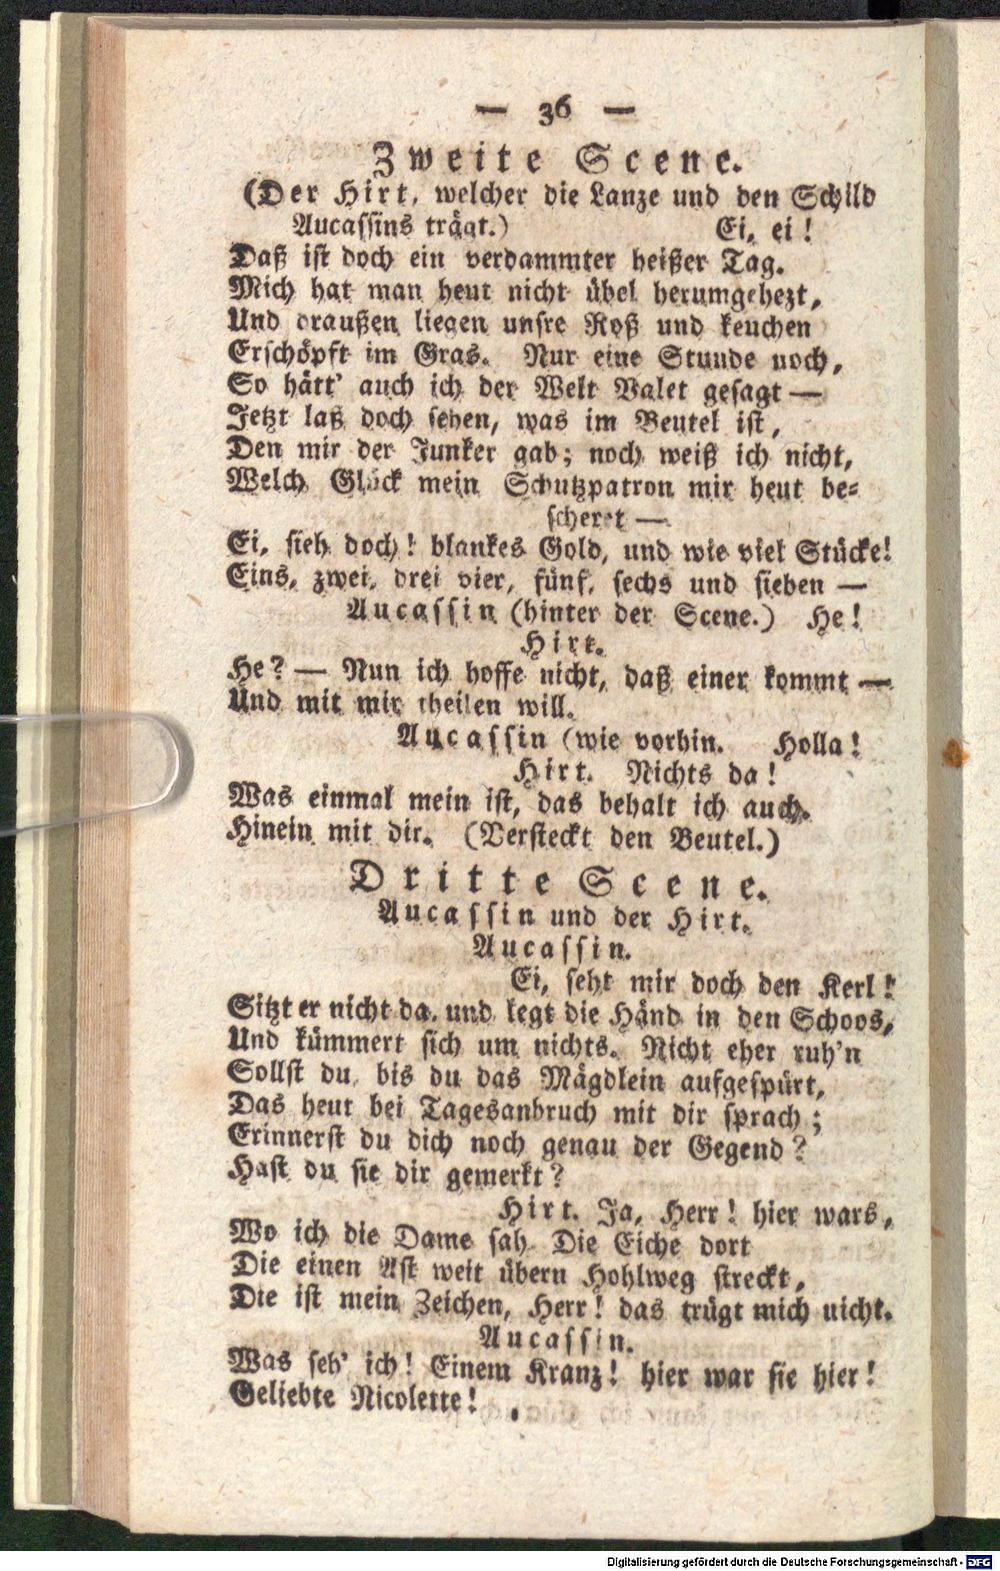 — 36 —
Zweite Scene.
(Der Hirt, welcher die Lanze und den Schild
Aucassins trägt.) Ei, ei!
Daß ist doch ein verdammter heißer Tag.
Mich hat man heut nicht übel herumgehezt,
Und draußen liegen unsre Roß und keuchen
Erschöpft im Gras. Nur eine Stunde noch,
So hätt' auch ich der Welt Valet gesagt —
Jetzt laß doch sehen, was im Beutel ist,
Den mir der Junker gab; noch weiß ich nicht,
Welch Glück mein Schutzpatron mir heut be-
scheret —
Ei, sieh doch! blankes Gold, und wie viel Stücke!
Eins, zwei, drei vier, fünf, sechs und sieben —
Aucassin (hinter der Scene.) He!
Hirt.
He? — Nun ich hoffe nicht, daß einer kommt —
Und mit mir theilen will.
Aucassin (wie vorhin. Holla!
Hirt. Nichts da!
Was einmal mein ist, das behalt ich auch.
Hinein mit dir. (Versteckt den Beutel.)
Dritte Scene.
Aucassin und der Hirt.
Aucassin.
Ei, seht mir doch den Kerl!
Sitzt er nicht da, und legt die Händ in den Schoos,
Und kümmert sich um nichts. Nicht eher ruh'n
Sollst du, bis du das Mägdlein aufgespürt,
Das heut bei Tagesanbruch mit dir sprach;
Erinnerst du dich noch genau der Gegend?
Hast du sie dir gemerkt?
Hirt. Ja, Herr! hier wars,
Wo ich die Dame sah. Die Eiche dort
Die einen Ast weit übern Hohlweg streckt,
Die ist mein Zeichen, Herr! das trügt mich nicht.
Aucassin.
Was seh' ich! Einem Kranz! hier war sie hier!
Geliebte Nicolette!
Digitalisierung gefördert durch die Deutsche Forschungsgemeinschaft - DFG